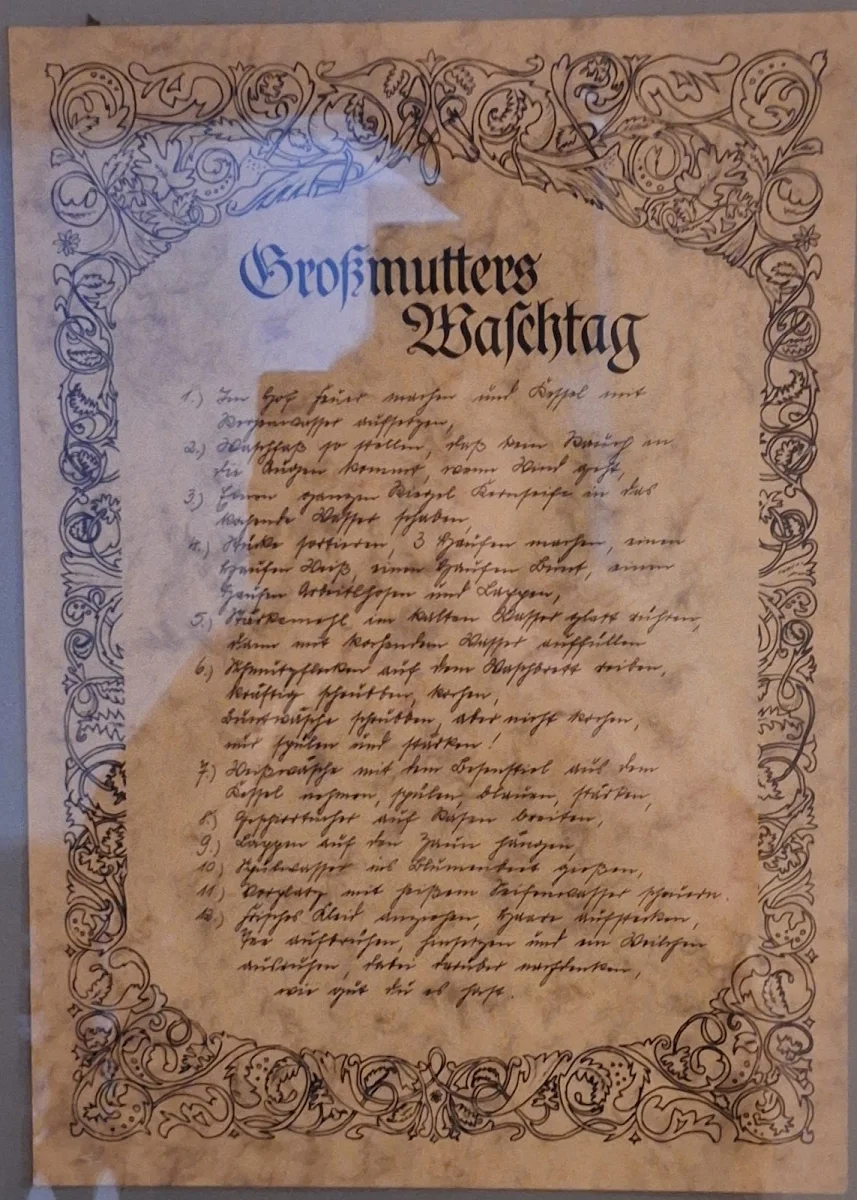 Großmutters
Waschtag
1.) Im Hof Feuer machen und Kessel mit
Regenwasser aufsetzen,
2.) Waschfaß so stellen, daß kein Rauch in
die Augen kommt, wenn Wind geht,
3.) Einen ganzen Riegel Kernseife in das
kochende Wasser schaben,
4.) Stücke sortieren, 3 Haufen machen, einen
Haufen Weiß, einen Haufen Bunt, einen
Haufen Arbeitshosen und Lappen,
5.) Stärkemehl im kalten Wasser glatt rühren,
dann mit kochendem Wasser auffüllen
6.) Schmutzflecken auf dem Waschbrett reiben,
kräftig schrubben, kochen,
Buntwäsche schrubben, aber nicht kochen,
nur spülen und stärken!
7.) Weißwäsche mit dem Besenstiel aus dem
Kessel nehmen, spülen, blauen, stärken,
8.) Geschirrtücher auf Rasen breiten,
9.) Lappen auf den Zaun hängen,
10.) Spülwasser ins Blumenbeet gießen,
11.) Vorplatz mit heißem Seifenwasser scheuern.
12.) Frisches Kleid anziehen, Haare aufstecken,
Tee aufbrühen, hinsetzen und ein Weilchen
ausruhen, dabei darüber nachdenken,
wie gut du es hast.